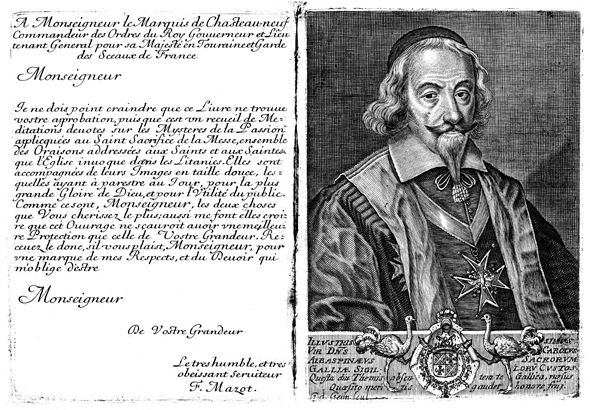 A Monseigneur le Marquis de Chasteau-neuf
Commandeur des Ordres du Roy Gouuerneur et Lieu
tenant General pour sa Majesté en Touraine et Garde
des Sceaux de France
Monseigneur
Je ne dois point craindre que ce Liure ne trouue
vostre approbation, puis que c'est vn recueil de Me-
ditations deuotes sur les Mysteres de la Passion
applicquées au Saint Sacrifice de la Messe, ensemble
des Oraisons addressées aux Saints et aux Saintes
que l'Eglise inuoque dans les Litanies. Elles sont
accompagnées de leurs Images en taille douce, les-
quelles ayant à parestre au Jour, pour la plus
grande Gloire de Dieu, et pour l'Vtilité du public.
Comme ce sont, Monseigneur, les deux choses
que Vous cherissez le plus; aussi me font elles croi-
re que cet Ouurage ne sçauroit auoir vne meilleu-
re Protection que celle de Vostre Grandeur. Re-
ceuez le donc, s'il vous plaist, Monseigneur, pour
vne marque de mes Respects, et du Deuoir qui
m'oblige d'estre
Monseigneur
De Vostre Grandeur
Le tres humble, et tres
obeissant seruiteur
F. Mazot.
ILLVSTRIS SIMVS
VIR DNS CAROLVS
ALBASPINÆVS SACRORVM
GALLIÆ SIGIL LORV CVSTOS
Quæsta diu Themis obscu tent te Gallica, rursus
Quæsito meri tis gaudet honore frui.